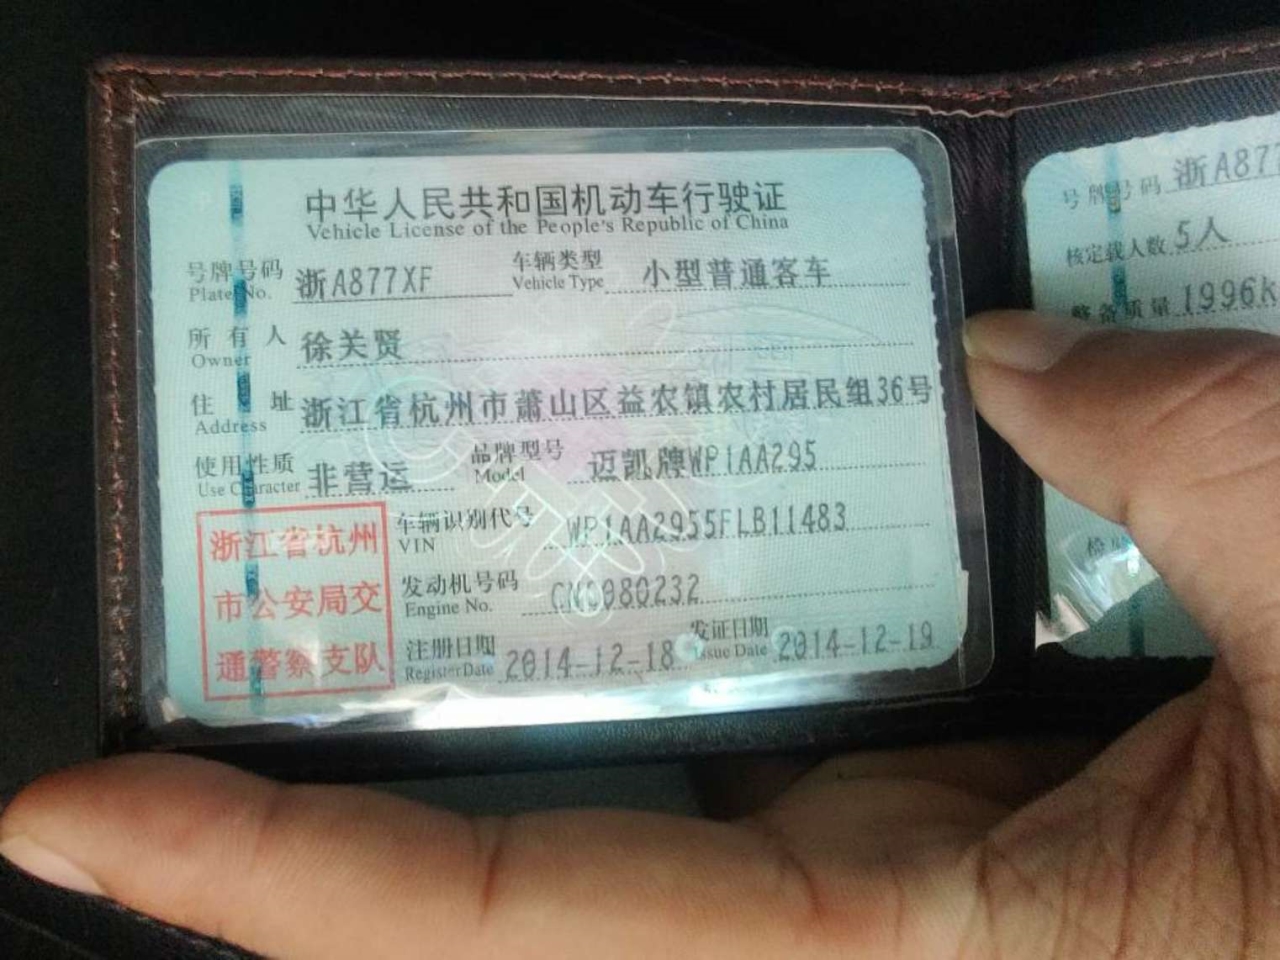 中华人民共和国机动车行驶证
Vehicle License of the People's Republic of China
号牌号码 浙A877XF 车辆类型 小型普通客车
Plate No. Vehicle Type
所有人 徐关贤
Owner
住址 浙江省杭州市萧山区益农镇农村居民组36号
Address
使用性质 非营运 品牌型号 迈凯牌WP1AA295
Use Character Model
车辆识别代号 WP1AA2955FLB11483
VIN
发动机号码 CNC080232
Engine No.
注册日期 2014-12-18 发证日期 2014-12-19
Register Date Issue Date
浙江省杭州
市公安局交
通警察支队
号牌号码 浙A877
核定载人数 5人
整备质量 1996k